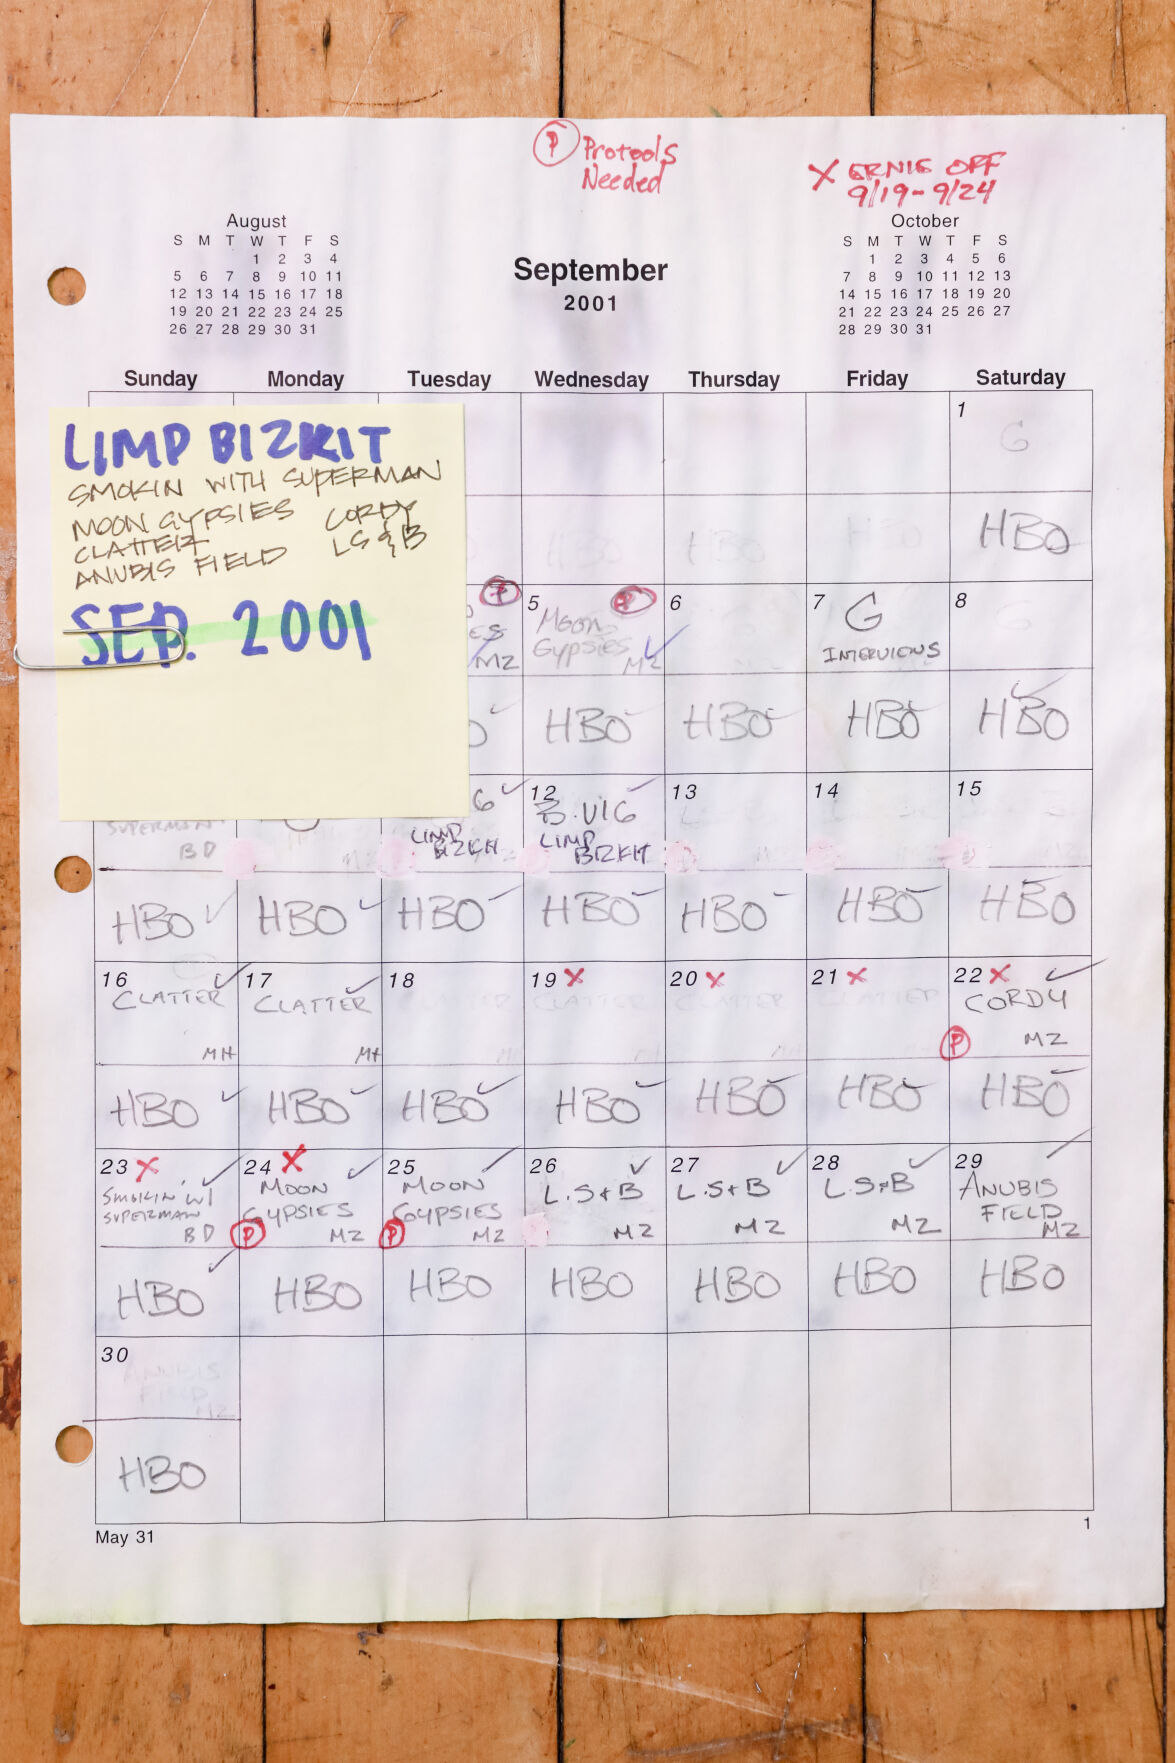 P Protools
Needed
X ERNIE OFF
9/19 - 9/24
August
S M T W T F S
1 2 3 4
5 6 7 8 9 10 11
12 13 14 15 16 17 18
19 20 21 22 23 24 25
26 27 28 29 30 31
September
2001
October
S M T W T F S
1 2 3 4 5 6
7 8 9 10 11 12 13
14 15 16 17 18 19 20
21 22 23 24 25 26 27
28 29 30 31
Sunday Monday Tuesday Wednesday Thursday Friday Saturday
LIMP BIZKIT
SMOKIN WITH SUPERMAN
MOON GYPSIES CORDY
CLATTER LS & B
ANUBIS FIELD
SEP. 2001
1 G
HBO HBO HBO HBO
P 5 P 6 7 G 8 G
ES Moon
Gypsies INTERVIEWS
MZ MZ
HBO HBO HBO HBO
6 12 B.VIG 13 14 15
SUPERMAN LIMP BIZKIT LIMP BIZKIT
BD
HBO HBO HBO HBO HBO HBO HBO
16 17 18 19 X 20 X 21 X 22 X
CLATTER CLATTER CLATTER CLATTER CLATTER CLATTER CORDY
MH MH P MZ
HBO HBO HBO HBO HBO HBO HBO
23 X 24 X 25 26 27 28 29
SMOKIN W/ MOON MOON L.S+B L.S+B L.S+B ANUBIS
SUPERMAN GYPSIES GYPSIES FIELD
BD P MZ P MZ MZ MZ MZ MZ
HBO HBO HBO HBO HBO HBO HBO
30
ANUBIS
FIELD
MZ
HBO
May 31 1